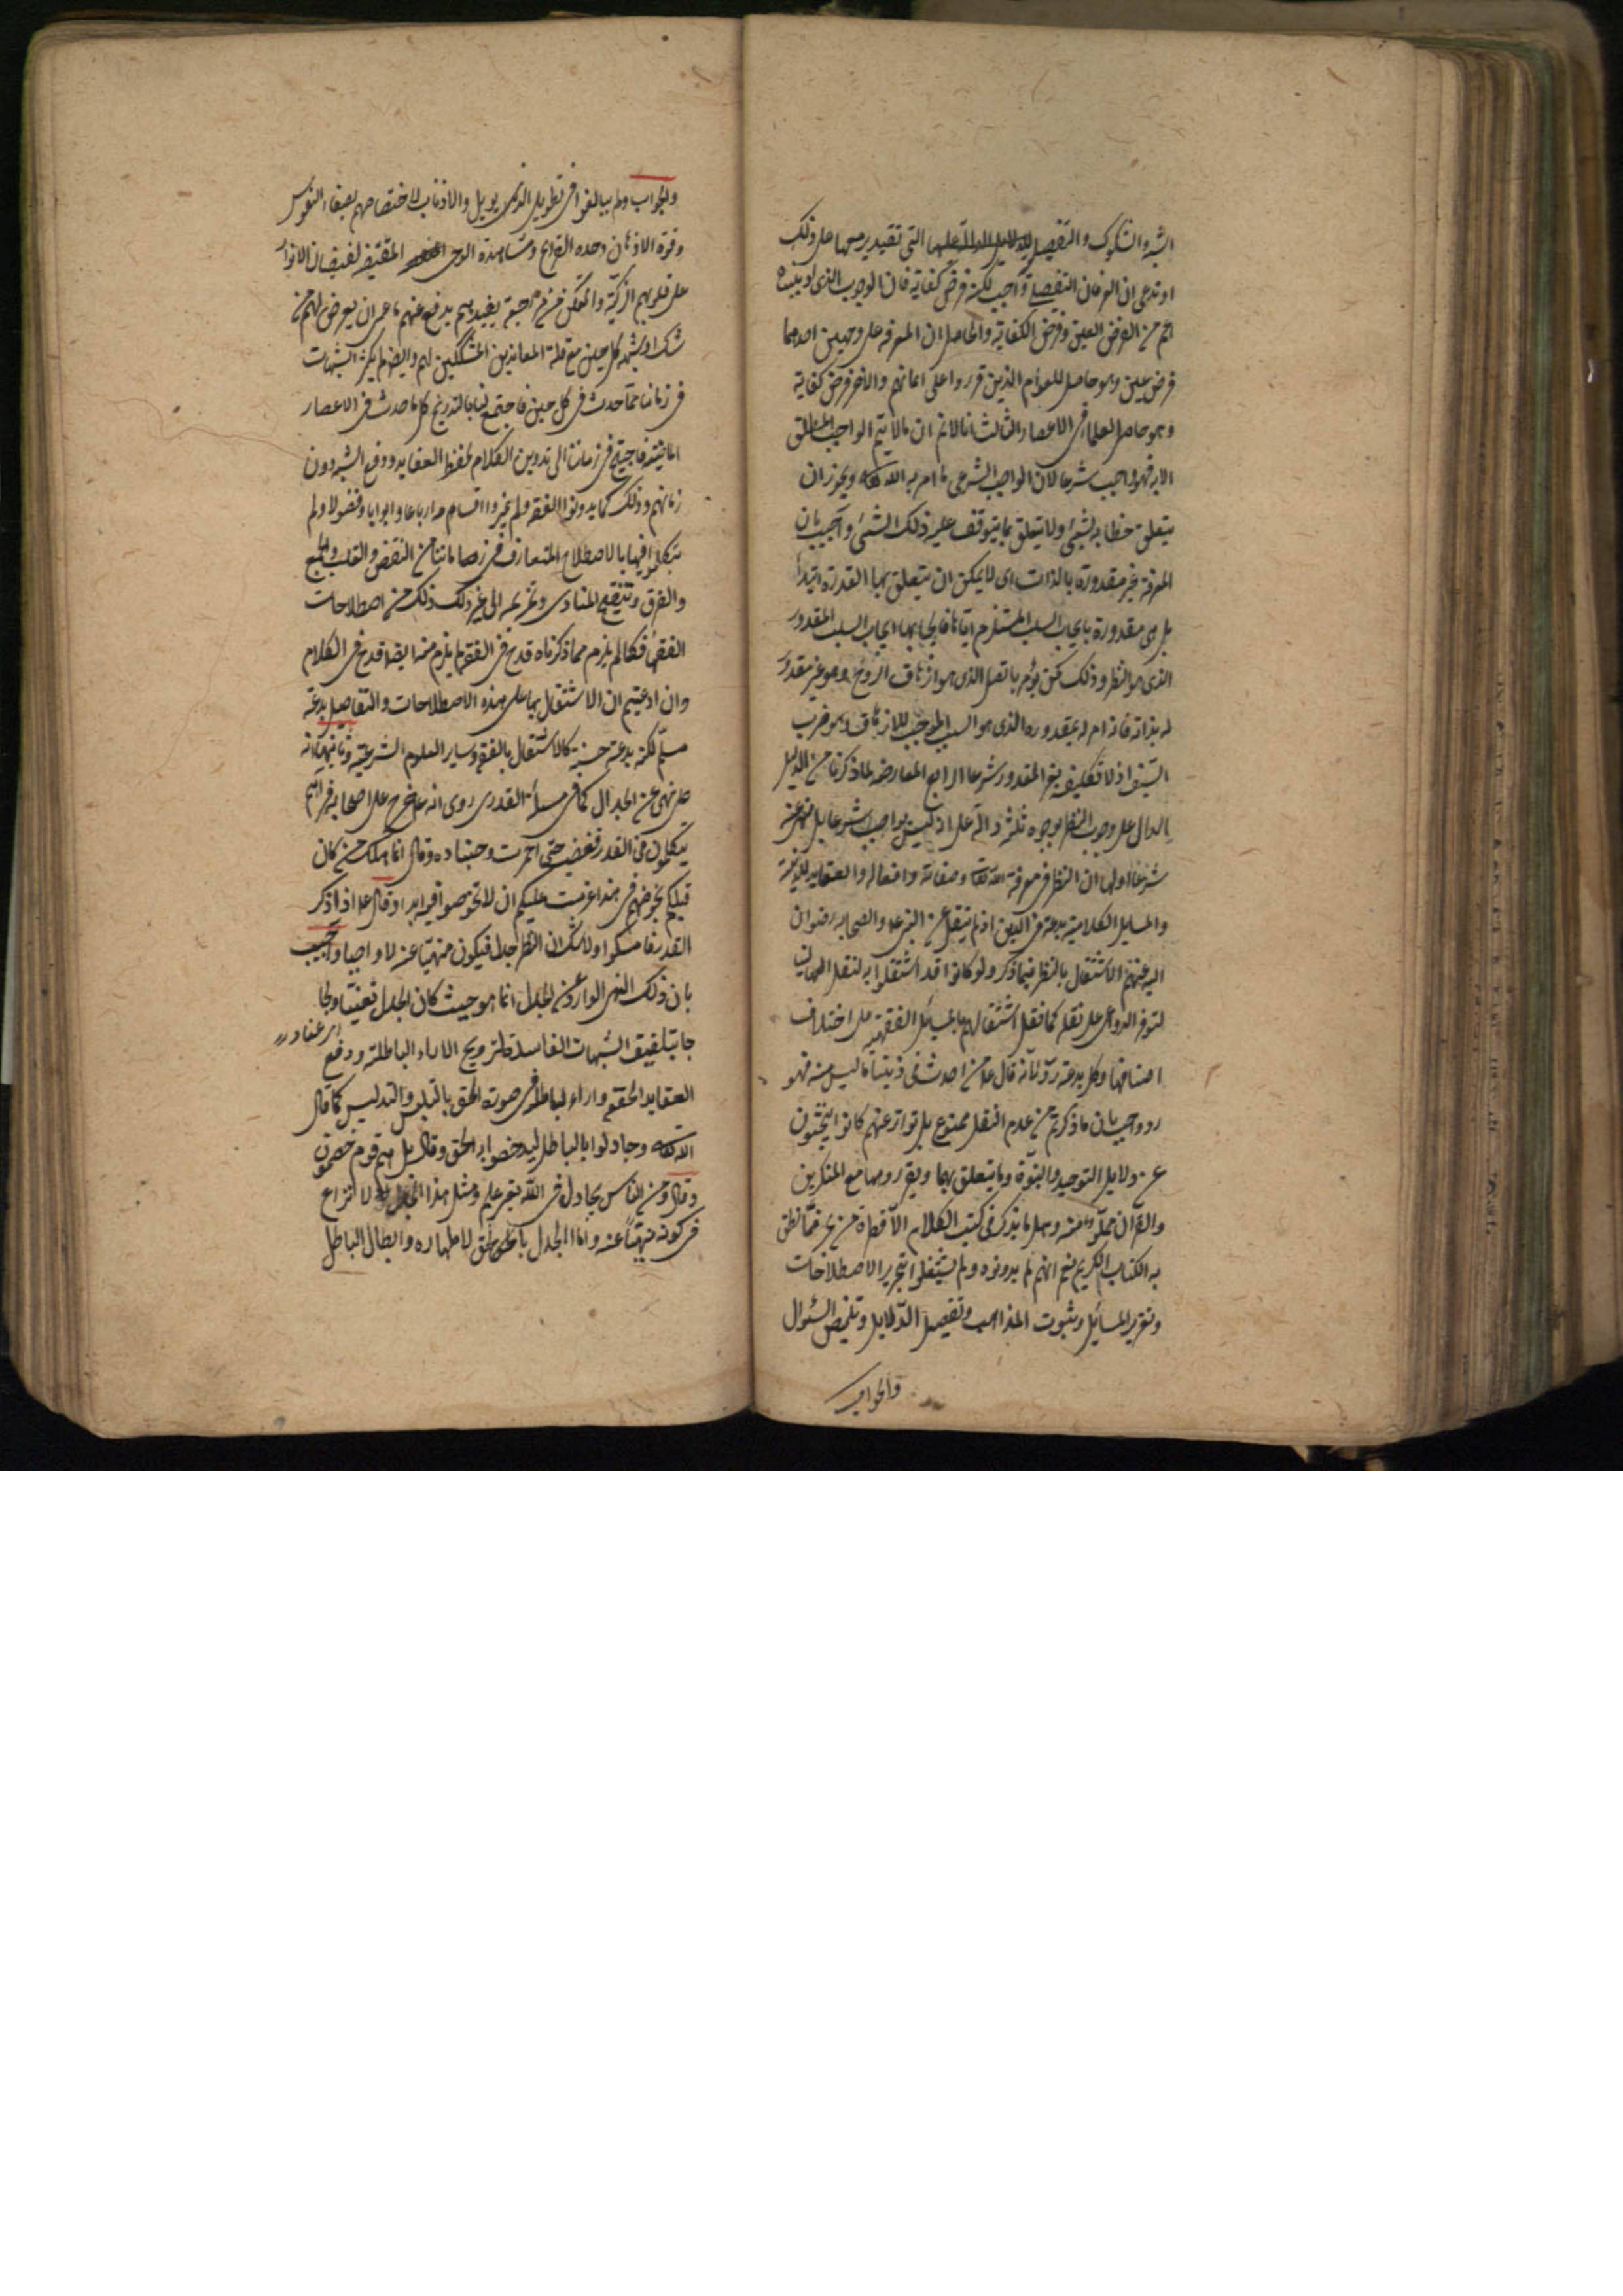 الشبه والشكوك والتفصيل للدلايل الدالة عليها التي تقيد يرميها على ذلك
او تدعى ان العرفان التفصيلي واجب لكنه فرض كفاية فان الوجوب الذى او يثبته
اعم من الفرض العين وفرض الكفاية والحاصل ان المعرفة على وجهين احدهما
فرض عين وهو حاصل للعوام الذين قرروا على ايمانهم والاخر فرض كفاية
وهو حاصل للعلماء فى الاعصار الثالث انا لا نم ان ما لا يتم الواجب المطلق
الا به فهو واجب شرعا لان الواجب الشرعى ما امر به الله تعالى ويجوز ان
يتعلق خطابه بشىء ولا يتعلق بما يتوقف عليه ذلك الشىء واجيب بان
المعرفة غير مقدورة بالذات اى لا يمكن ان يتعلق بها القدرة ابتداء
بل هى مقدورة بايجاب السبب المستلزم اياها فايجابها ايجاب السبب المقدور
الذى هو النظر وذلك كمن يؤمر بالقتل الذى هو ازهاق الروح وهو غير مقدور
له بذاته فانه امر له بمقدوره الذى هو السبب الموجب للازهاق وهو ضرب
السيف اذ لا تكليف بغير المقدور شرعا الرابع المعارضة لما ذكرنا من الدليل
الدال على وجوب النظر بوجوه ثلثة دالة على انه ليس بواجب شرعا بل منهى عنه
شرعا اولها ان النظر فى معرفة الله تعالى وصفاته وافعاله والعقايد الدينية
والمسايل الكلامية بدعة فى الدين اذ لم ينقل عن النبى عم والصحابة رضوان
الله عنهم الاشتغال بالنظر فيما ذكر ولو كانوا قد اشتغلوا به لنقل الينا
لتوفر الدواعى على نقله كما نقل اشتغالهم بالمسائل الفقهية على اختلاف
اصنافها وكل بدعة رد لانه قال عم من احدث فى ديننا ما ليس منه فهو
رد واجيب بان ما ذكرتم من عدم النقل ممنوع بل تواتر عنهم كانوا يبحثون
عن دلايل التوحيد والنبوة وما يتعلق بهما ويقررونها مع المنكرين
والقرآن مملو منه وهل ما يذكر فى كتب الكلام الا قطرة من بحر مما نطق
به الكتاب الكريم نعم انهم لم يدونوه ولم يشتغلوا بتحرير الاصطلاحات
وتقرير المسائل وثبوت المذاهب وتفصيل الدلايل وتلخيص السئوال
والجواب
والجواب ولم يبالغوا فى تطويل الذيول والاذناب لاختصاصهم بصفاء النفوس
وقوة الاذهان وحدة القرايح ومشاهدة الوحى المقتضية لفيضان الانوار
على قلوبهم الزكية والتمكن من مراجعة من يفيدهم يدفع عنهم ما عسى ان يعرض لهم من
شك او شبهة كل حين مع قلة المعاندين المشككين لهم وايضا لم يكثر الشبهات
فى زمانهم مما حدث فى كل حين فاجتمع لنا بالتدريج كل ما حدث فى الاعصار
الماضية فاحتيج فى زماننا الى تدوين الكلام لحفظ العقايد ودفع الشبه دون
زمانهم وذلك كما لم يدونوا الفقه ولم يميزوا اقسامه ارباعا وابوابا وفصولا ولم
يتكلموا فيها بالاصطلاح المتعارف فى زماننا من النقض والقلب والجمع
والفرق وتنقيح المناط وتخريجه الى غير ذلك من اصطلاحات
الفقهاء فكما لم يلزم مما ذكرناه قدح فى الفقه لم يلزم منه ايضا قدح فى الكلام
وان ادعيتم ان الاشتغال بها على هذه الاصطلاحات والتفاصيل بدعة
مسلم لكنه بدعة حسنة كالاشتغال بالفقه وساير العلوم الشرعية وثانيها انه
صلم نهى عن الجدال كما فى مسألة القدر روى انه عم خرج على اصحابه فرآهم
يتكلمون فى القدر فغضب حتى احمرت وجنتاه وقال انما هلك من كان
قبلكم بخوضهم فى هذا عزمت عليكم ان لا تخوضوا فيه ابدا وقال عم اذا ذكر
القدر فامسكوا ولا شك ان النظر جدل فيكون منهيا عنه لا واجبا واجيب
بان ذلك النهى الوارد عن الجدل انما هو حيث كان الجدل تعنتا ولجا
اى عنادا
جا بتلفيق الشبهات الفاسدة لترويج الاراء الباطلة ودفع
العقايد الحقة واراء الباطل فى صورة الحق بالتلبيس والتدليس كما قال
الله تعالى وجادلوا بالباطل ليدحضوا به الحق وقال بل هم قوم خصمون
وقال ومن الناس يجادل فى الله بغير علم ومثل هذا الجدل لا نزاع
فى كونه منهيا عنه واما الجدل بالحق لاظهاره وابطال الباطل